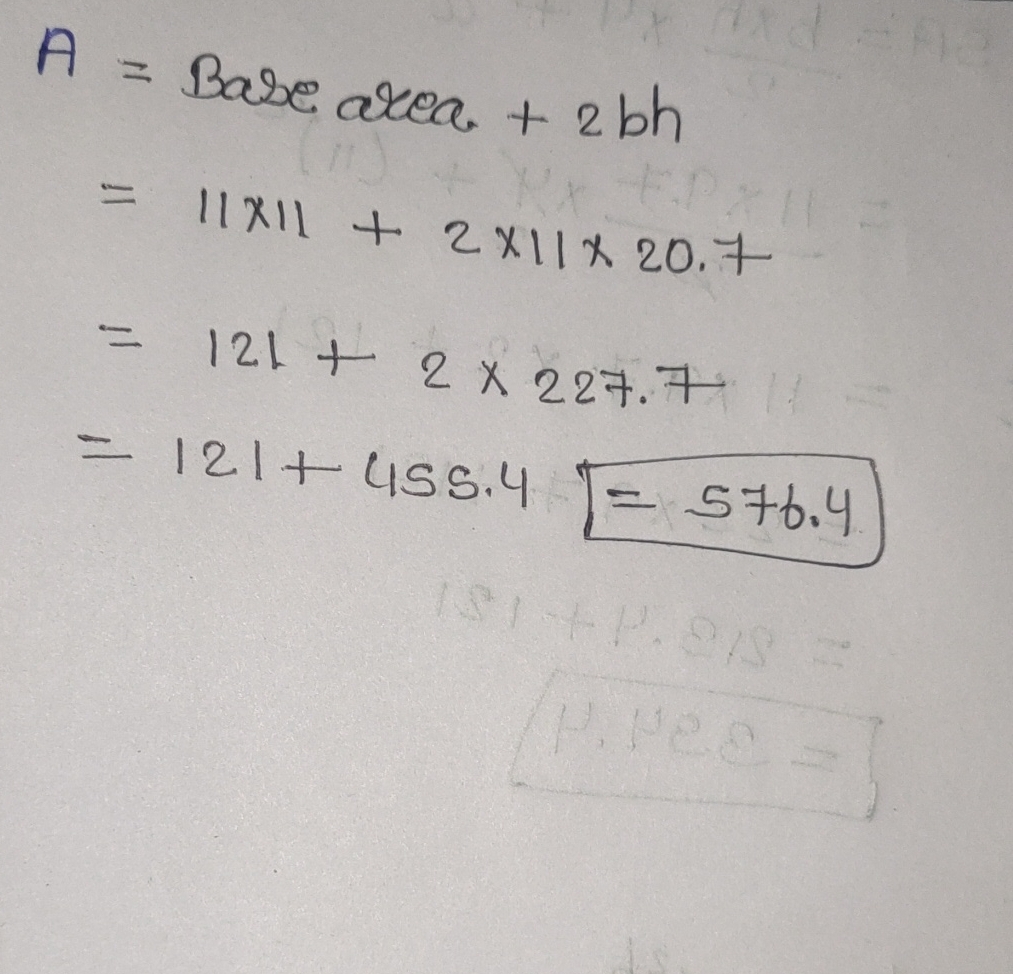 A = Base area + 2bh
= 11×11 + 2×11×20.7
= 121 + 2×227.7
= 121 + 455.4 = 576.4